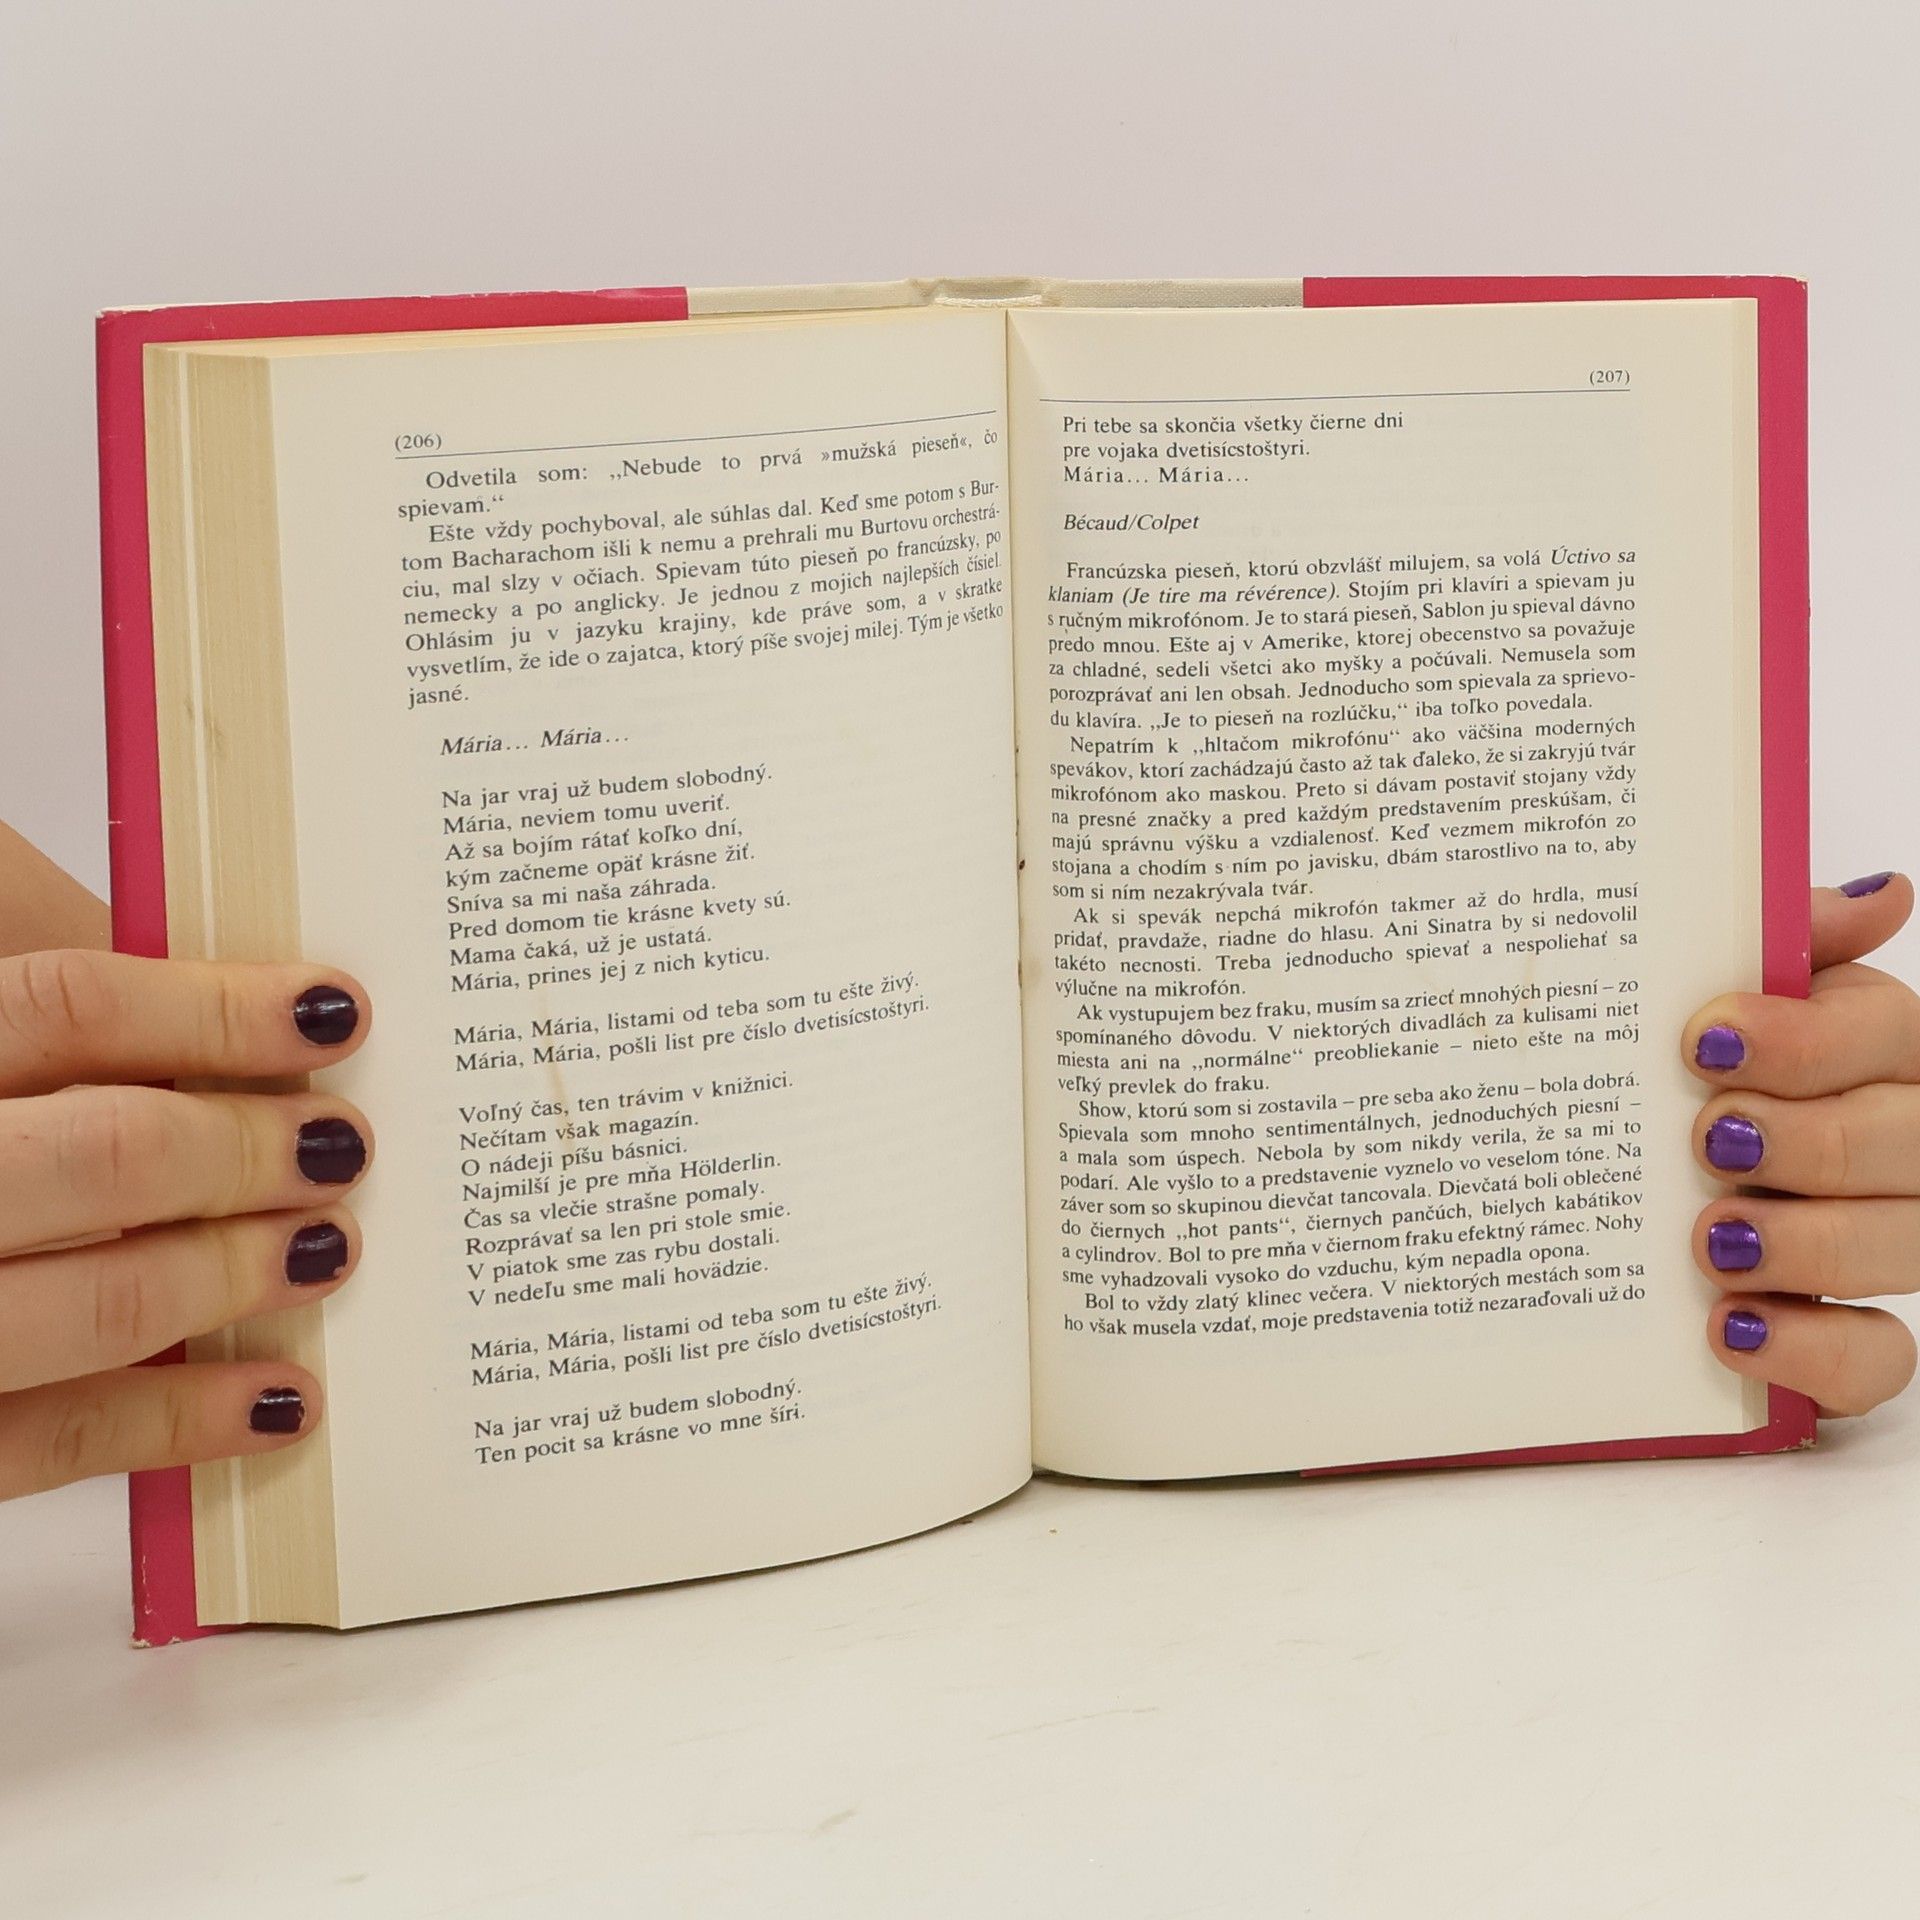 (206)
Odvetila som: ,,Nebude to prvá »mužská pieseň«, čo
spievam.“
Ešte vždy pochyboval, ale súhlas dal. Keď sme potom s Bur-
tom Bacharachom išli k nemu a prehrali mu Burtovu orchestrá-
ciu, mal slzy v očiach. Spievam túto pieseň po francúzsky, po
nemecky a po anglicky. Je jednou z mojich najlepších čísiel.
Ohlásim ju v jazyku krajiny, kde práve som, a v skratke
vysvetlím, že ide o zajatca, ktorý píše svojej milej. Tým je všetko
jasné.
Mária... Mária...
Na jar vraj už budem slobodný.
Mária, neviem tomu uveriť.
Až sa bojím rátať koľko dní,
kým začneme opäť krásne žiť.
Sníva sa mi naša záhrada.
Pred domom tie krásne kvety sú.
Mama čaká, už je ustatá.
Mária, prines jej z nich kyticu.
Mária, Mária, listami od teba som tu ešte živý.
Mária, Mária, pošli list pre číslo dvetisícstoštyri.
Voľný čas, ten trávim v knižnici.
Nečítam však magazín.
O nádeji píšu básnici.
Najmilší je pre mňa Hölderlin.
Čas sa vlečie strašne pomaly.
Rozprávať sa len pri stole smie.
V piatok sme zas rybu dostali.
V nedeľu sme mali hovädzie.
Mária, Mária, listami od teba som tu ešte živý.
Mária, Mária, pošli list pre číslo dvetisícstoštyri.
Na jar vraj už budem slobodný.
Ten pocit sa krásne vo mne šíri.
(207)
Pri tebe sa skončia všetky čierne dni
pre vojaka dvetisícstoštyri.
Mária... Mária...
Bécaud/Colpet
Francúzska pieseň, ktorú obzvlášť milujem, sa volá Úctivo sa
klaniam (Je tire ma révérence). Stojím pri klavíri a spievam ju
s ručným mikrofónom. Je to stará pieseň, Sablon ju spieval dávno
predo mnou. Ešte aj v Amerike, ktorej obecenstvo sa považuje
za chladné, sedeli všetci ako myšky a počúvali. Nemusela som
porozprávať ani len obsah. Jednoducho som spievala za sprievo-
du klavíra. ,,Je to pieseň na rozlúčku,“ iba toľko povedala.
Nepatrím k ,,hltačom mikrofónu“ ako väčšina moderných
spevákov, ktorí zachádzajú často až tak ďaleko, že si zakryjú tvár
mikrofónom ako maskou. Preto si dávam postaviť stojany vždy
na presné značky a pred každým predstavením preskúšam, či
majú správnu výšku a vzdialenosť. Keď vezmem mikrofón zo
stojana a chodím s ním po javisku, dbám starostlivo na to, aby
som si ním nezakrývala tvár.
Ak si spevák nepchá mikrofón takmer až do hrdla, musí
pridať, pravdaže, riadne do hlasu. Ani Sinatra by si nedovolil
takéto necnosti. Treba jednoducho spievať a nespoliehať sa
výlučne na mikrofón.
Ak vystupujem bez fraku, musím sa zriecť mnohých piesní – zo
spomínaného dôvodu. V niektorých divadlách za kulisami niet
miesta ani na ,,normálne“ preobliekanie – nieto ešte na môj
veľký prevlek do fraku.
Show, ktorú som si zostavila – pre seba ako ženu – bola dobrá.
Spievala som mnoho sentimentálnych, jednoduchých piesní –
a mala som úspech. Nebola by som nikdy verila, že sa mi to
podarí. Ale vyšlo to a predstavenie vyznelo vo veselom tóne. Na
záver som so skupinou dievčat tancovala. Dievčatá boli oblečené
do čiernych ,,hot pants“, čiernych pančúch, bielych kabátikov
a cylindrov. Bol to pre mňa v čiernom fraku efektný rámec. Nohy
sme vyhadzovali vysoko do vzduchu, kým nepadla opona.
Bol to vždy zlatý klinec večera. V niektorých mestách som sa
ho však musela vzdať, moje predstavenia totiž nezaraďovali už do